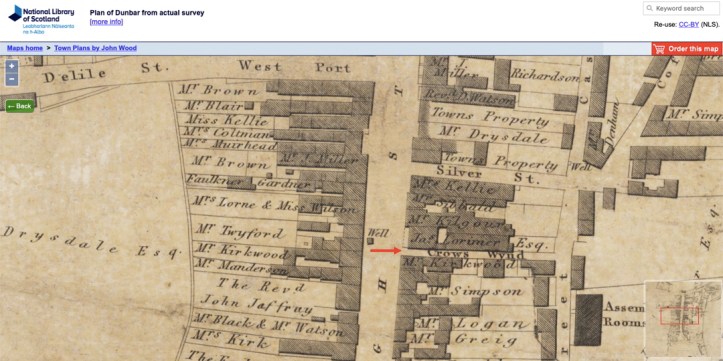 National Library
of Scotland
Leabharlann Nàiseanta
na h-Alba
Plan of Dunbar from actual survey
[more info]
Keyword search
Re-use: CC-BY (NLS).
Maps home > Town Plans by John Wood
Order this map
+
−
← Back
Delile St.
West Port
Mr. Brown
Mr. Blair
Miss Kellie
Mrs. Coltman
Mrs. Muirhead
Mr. Brown
Mr. J. Miller
Faulkner & Gardner
Mrs. Lorne & Miss Wilson
Mr. Twyford
Mr. Kirkwood
Mr. Manderson
The Revd
John Jaffray
Mr. Black & Mr. Watson
Mrs. Kirk
The
Drysdale Esq.
Well
S T
G H
Mr.
Miller
Richardson
Revd. D. Watson
Towns Property
Mr. Drysdale
Towns Property
Well
Silver St.
Mrs. Kellie
Mr. Sibbald
Mr. Kilgour
Jas. Lorimer Esq.
Crows Wynd
Mr. Kirkwood
Mr. Simpson
Mr. Logan
Mr. Greig
Cas
Mr. Denham
Cor
Mr. Simp
Esq.
reet
Assem
Rooms